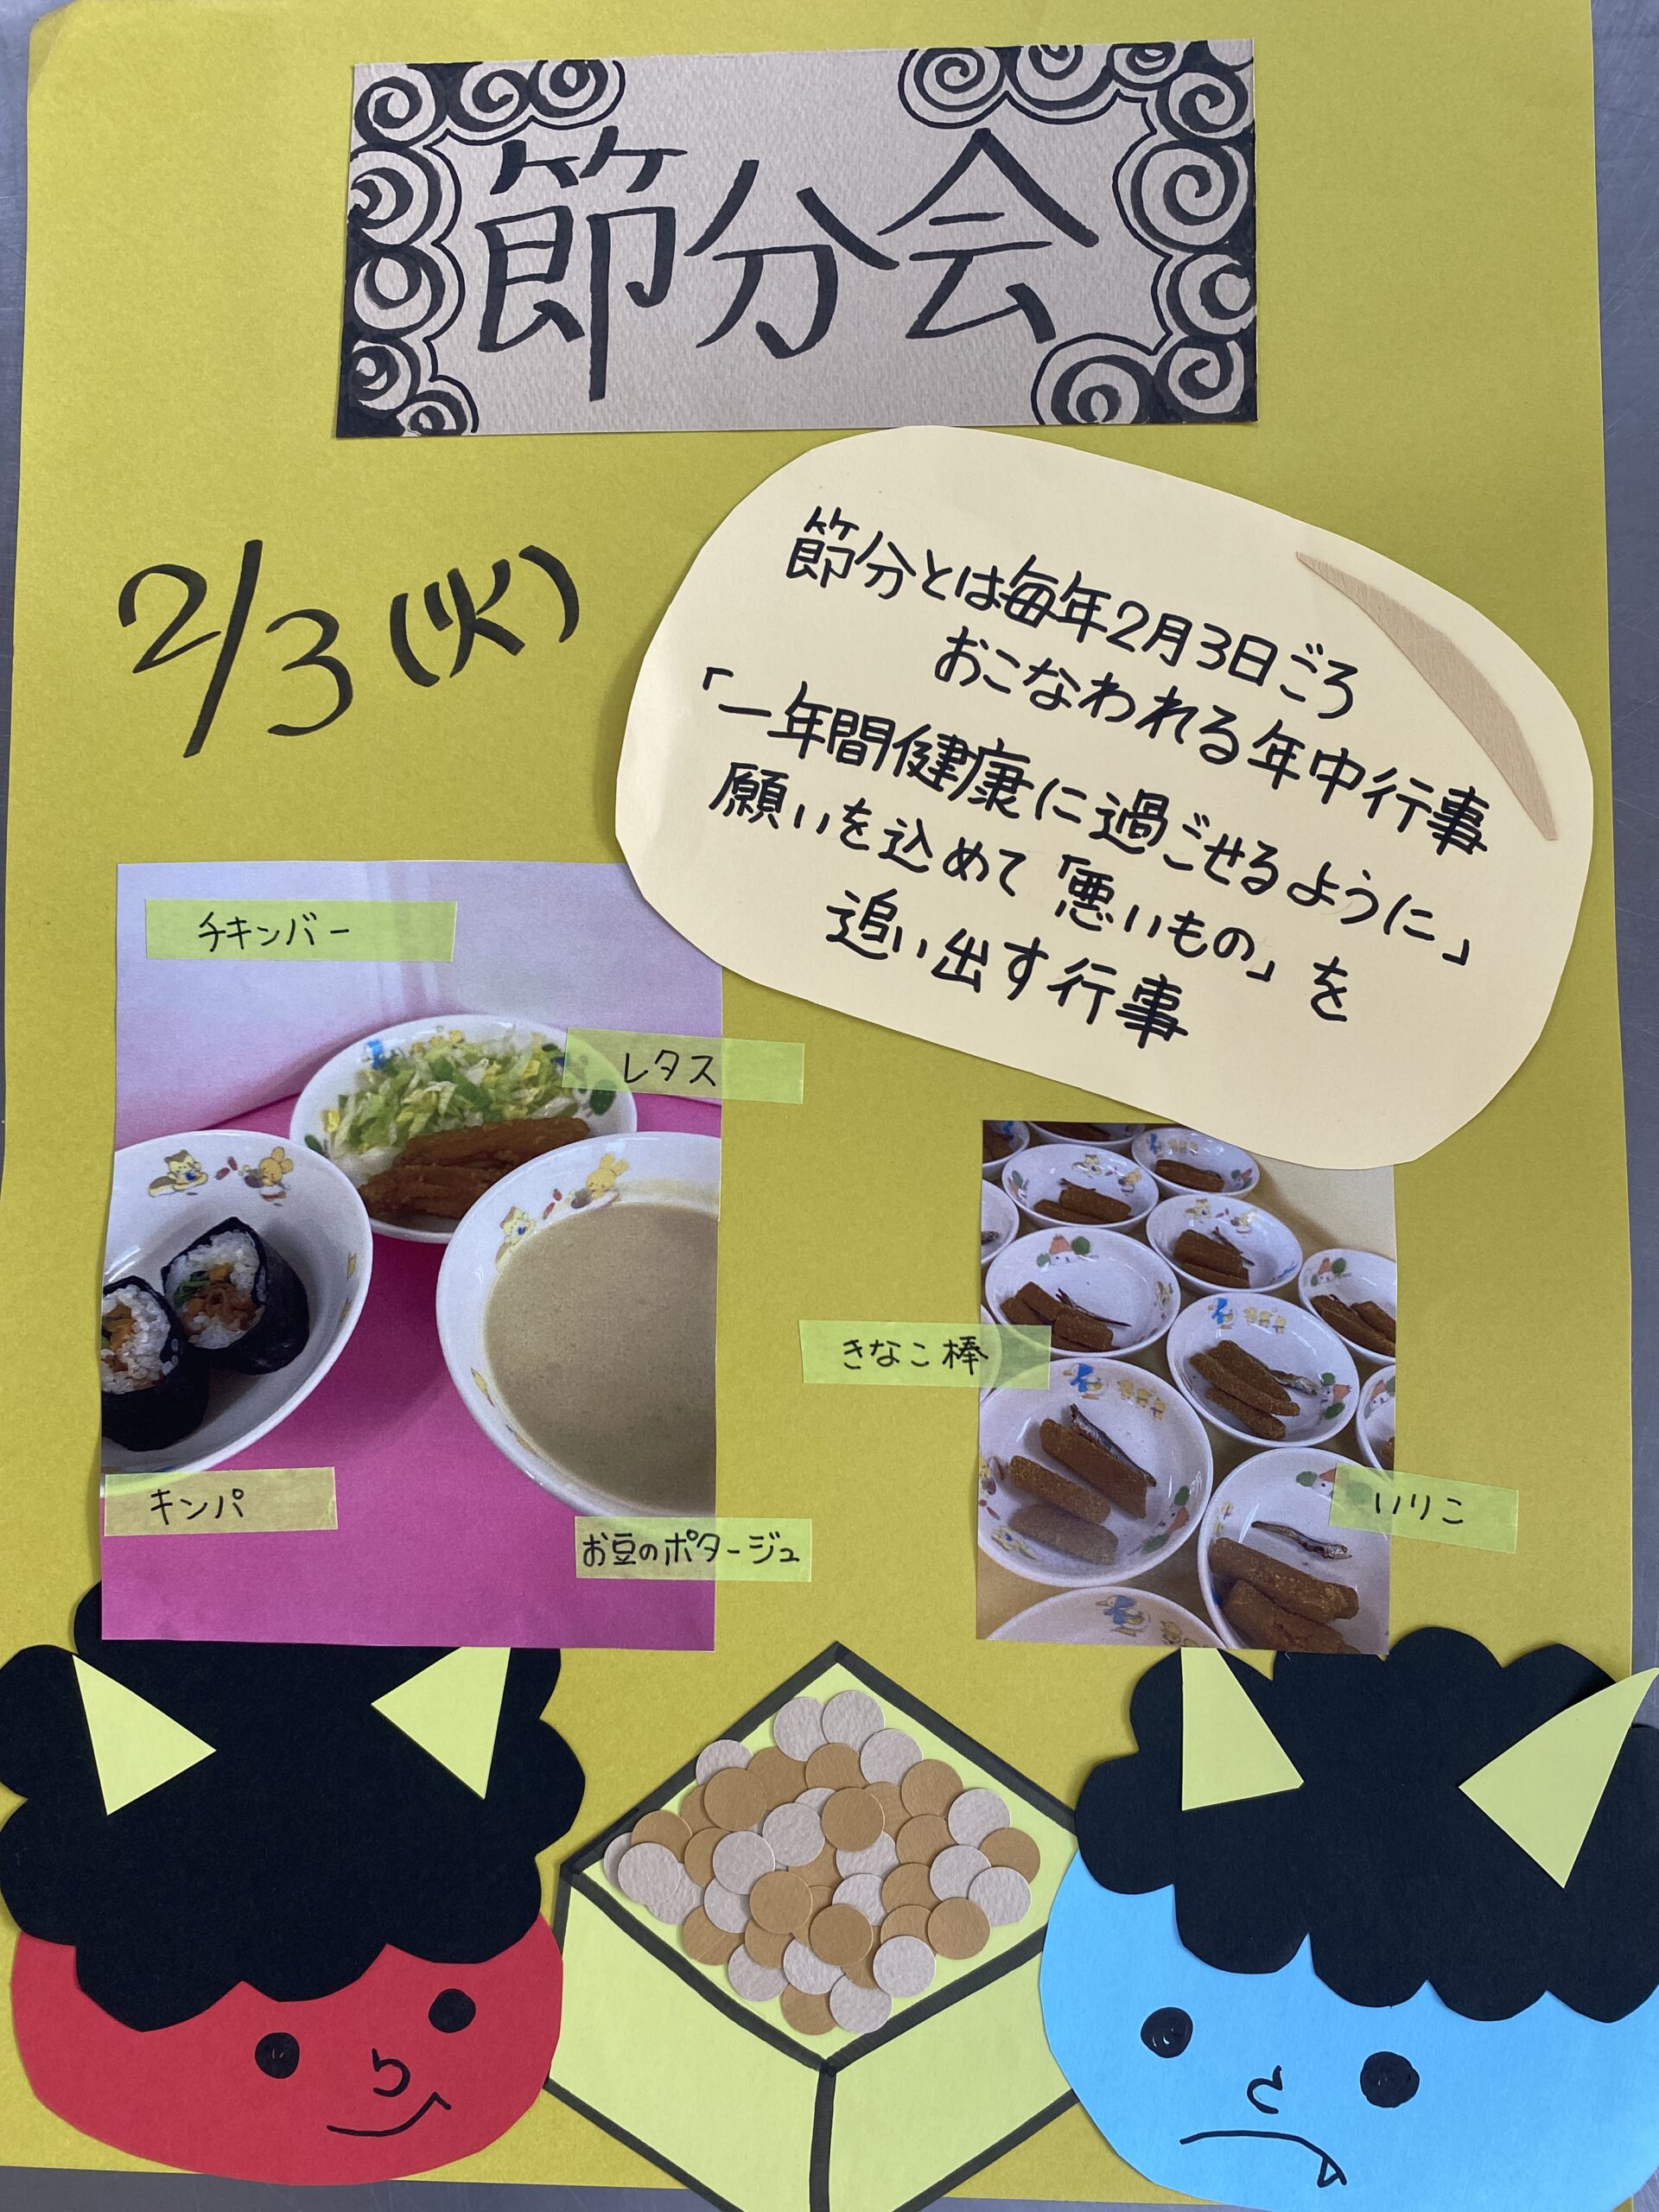 節分会
2/3(火)
節分とは毎年2月3日ごろ
おこなわれる年中行事
「一年間健康に過ごせるように」
願いを込めて「悪いもの」を
追い出す行事
チキンバー
レタス
キンパ
お豆のポタージュ
きなこ棒
いりこ